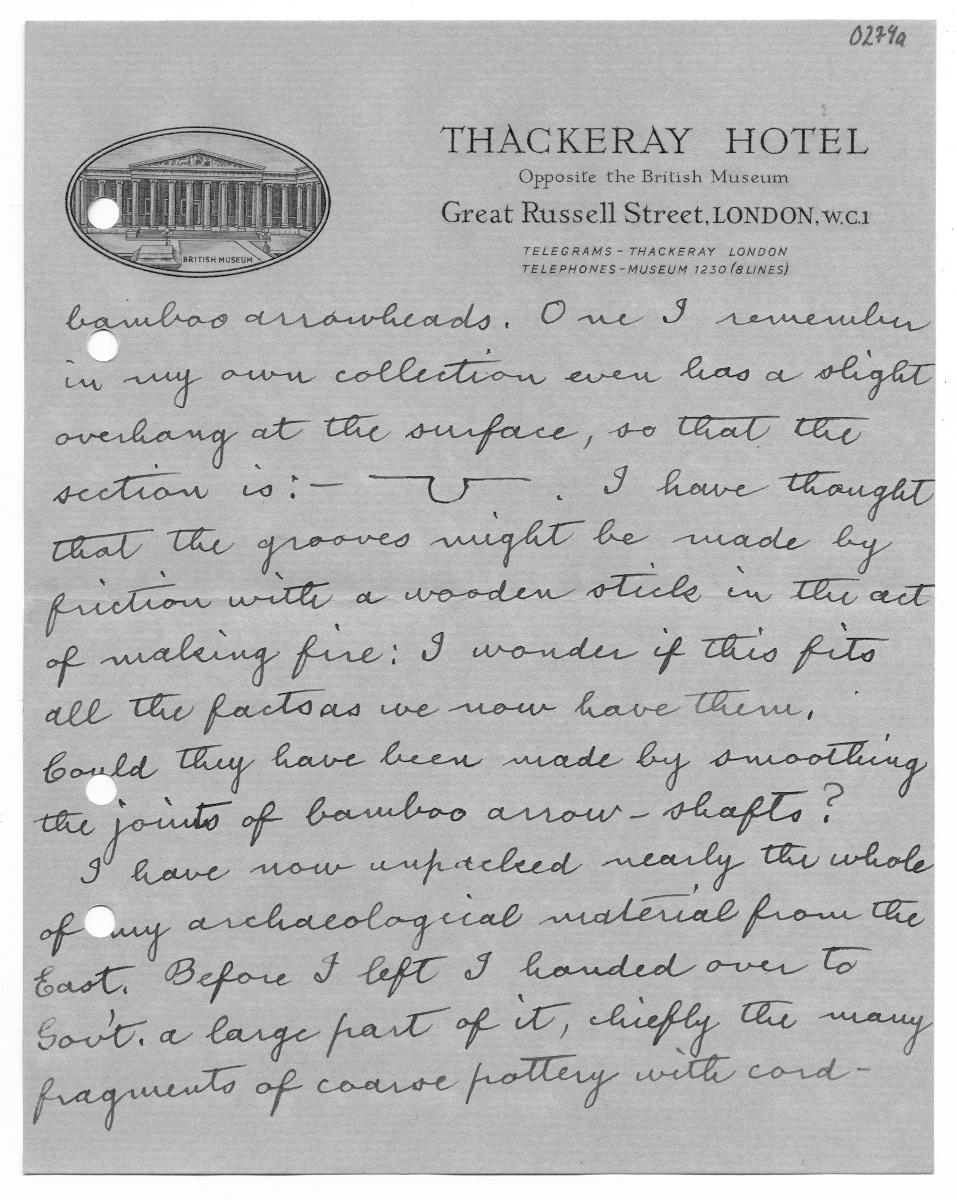 0274a
THACKERAY HOTEL
Opposite the British Museum
Great Russell Street, LONDON, W.C.1
TELEGRAMS - THACKERAY LONDON
TELEPHONES - MUSEUM 1230 (8 LINES)
BRITISH MUSEUM
bamboo arrowheads. One I remember
in my own collection even has a slight
overhang at the surface, so that the
section is:- . I have thought
that the grooves might be made by
friction with a wooden stick in the act
of making fire: I wonder if this fits
all the facts as we now have them.
Could they have been made by smoothing
the joints of bamboo arrow-shafts?
I have now unpacked nearly the whole
of my archaeological material from the
East. Before I left I handed over to
Gov't. a large part of it, chiefly the many
fragments of coarse pottery with cord-